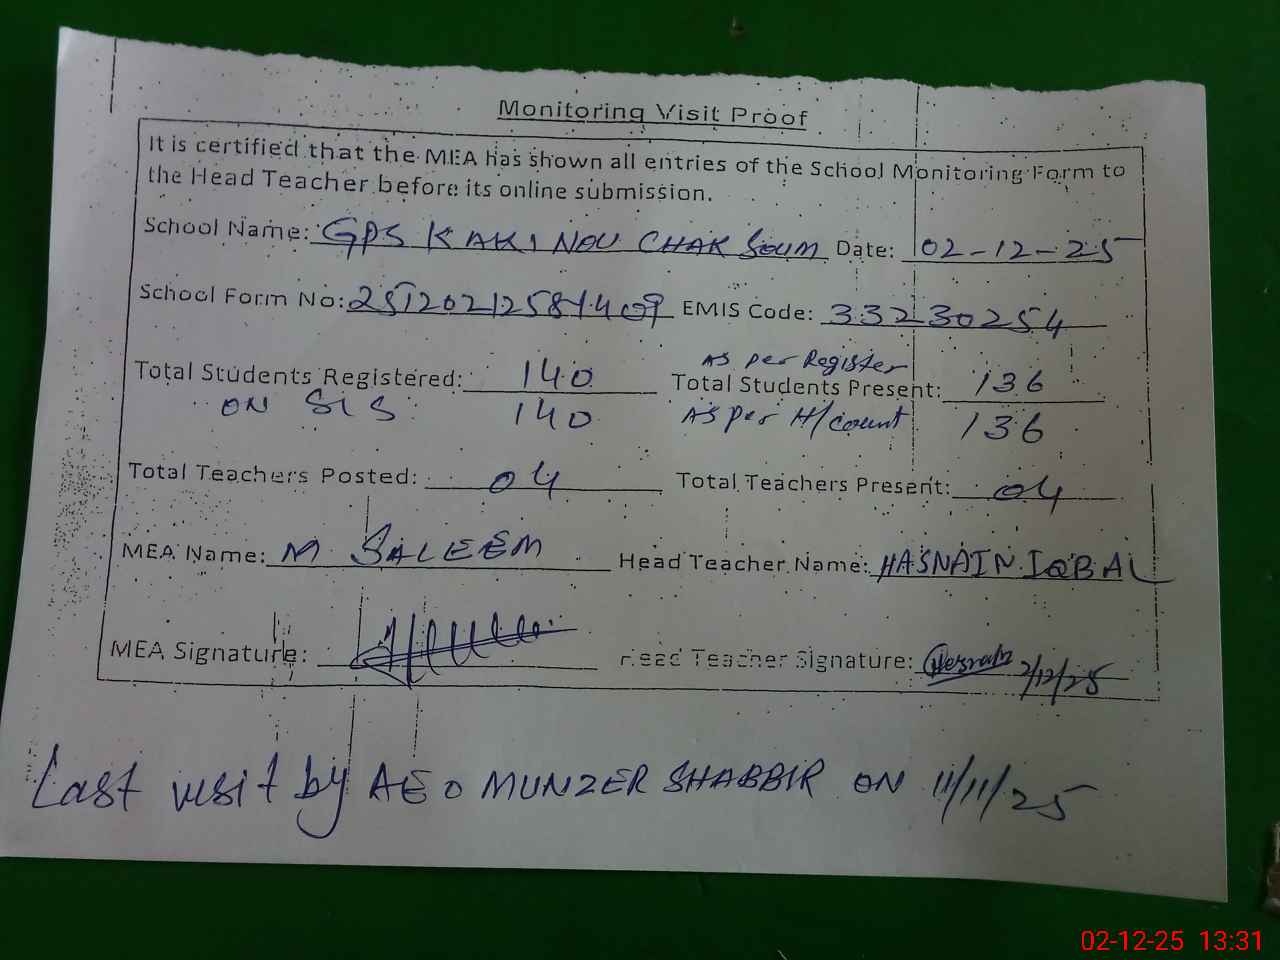 Monitoring Visit Proof
It is certified that the MEA has shown all entries of the School Monitoring Form to
the Head Teacher before its online submission.
School Name: GPS KAKI NOU CHAK SOUM Date: 02-12-25
School Form No: EMIS Code: 33230254
As per Register
Total Students Registered: 140 Total Students Present: 136
ON SIS 140 As per H/count 136
Total Teachers Posted: 04 Total Teachers Present: 04
MEA Name: M SALEEM Head Teacher Name: HASNAIN IQBAL
MEA Signature: Head Teacher Signature: Hasnain 2/12/25
Last visit by AEO MUNZER SHABBIR ON 11/11/25
02-12-25 13:31